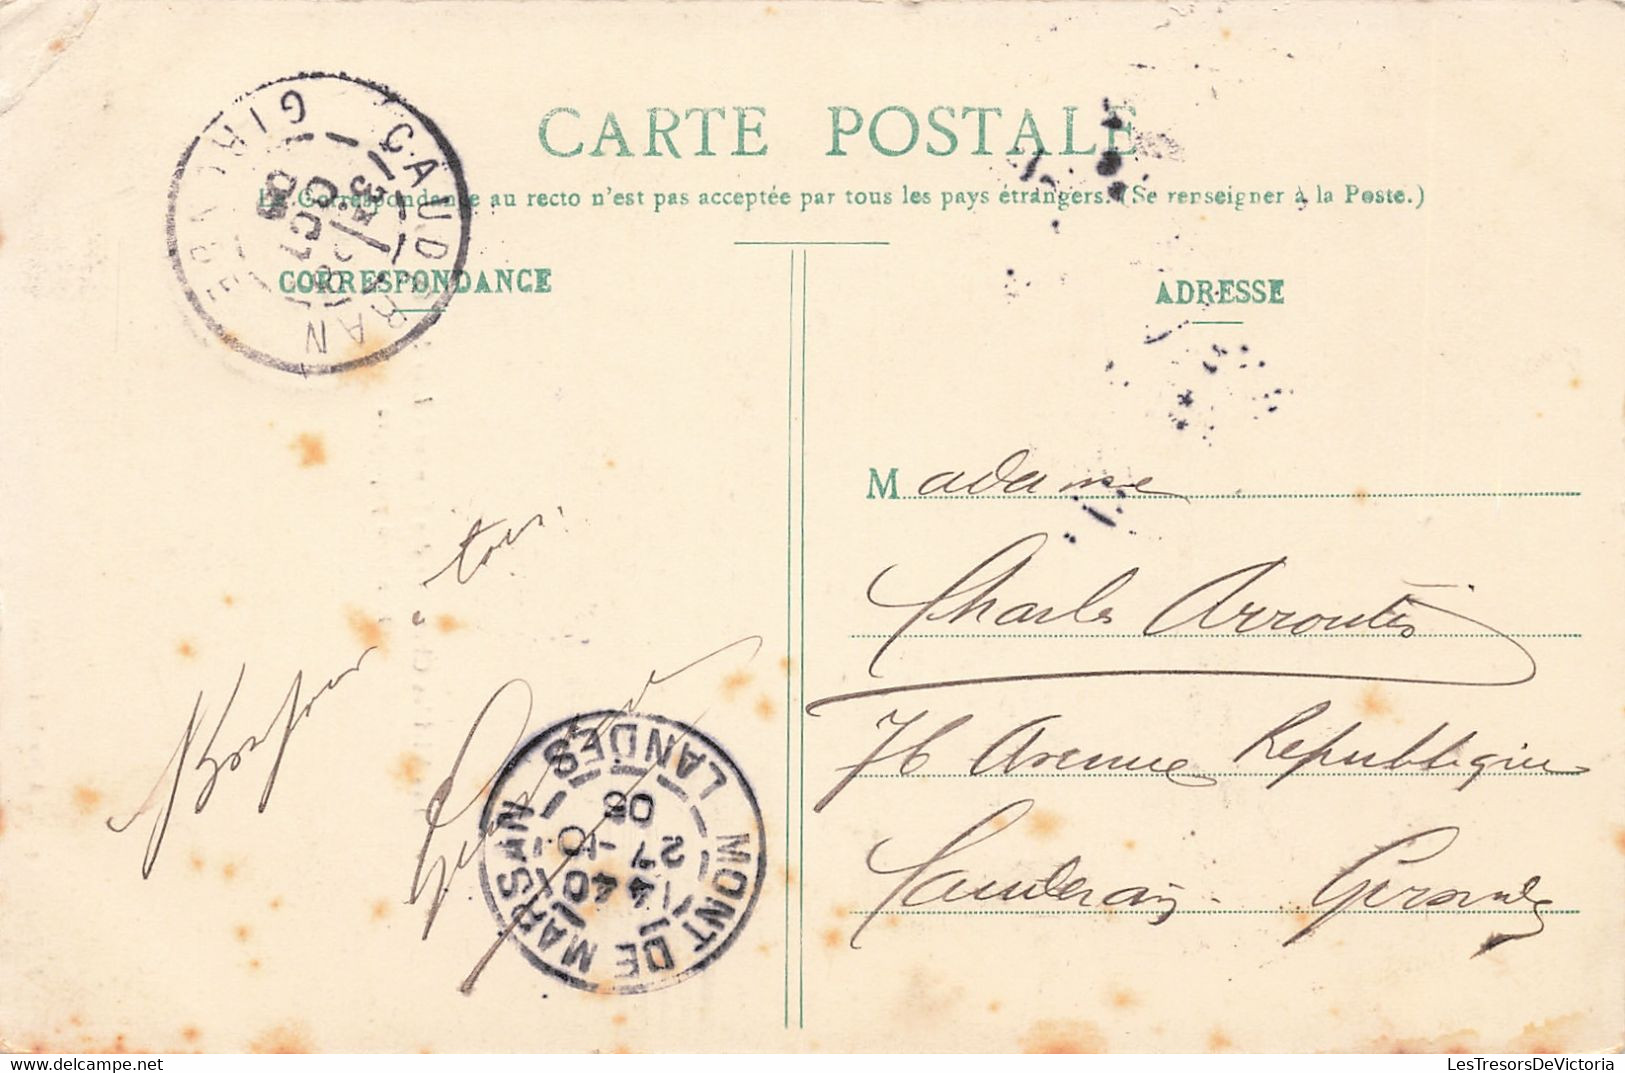 CARTE POSTALE
La Correspondance au recto n'est pas acceptée par tous les pays étrangers. (Se renseigner à la Poste.)
CORRESPONDANCE
ADRESSE
CAUDERAN
GIRONDE
OCT
Bonjour
à tous.
MONT DE MARSAN
LANDES
14 40
27 -10
08
Madame
Charles Arroutès
76 Avenue République
Caudéran - Gironde
LesTresorsDeVictoria